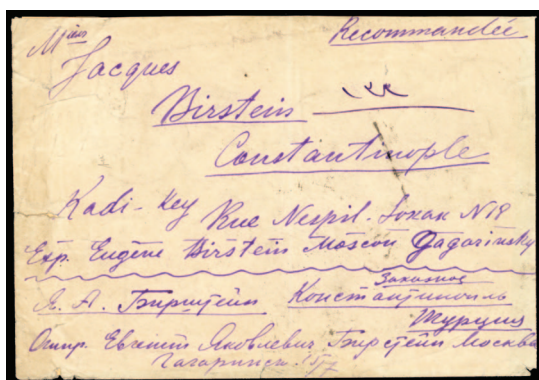 Mieur Recommandée
Jacques
Birstein
Constantinople
Kadi-Key Rue Nespil-Sokak N19
Exp. Eugène Birstein Moscou Gagarinsky
Заказное
Я. А. Бирштейн Константинополь
Турция
Отпр. Евгений Яковлевич Бирштейн Москва
Гагаринск.